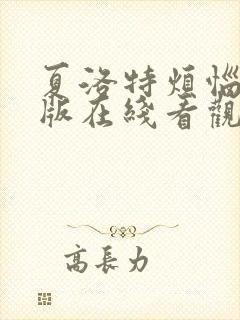 夏洛特烦恼
版在綫看觀
高長力